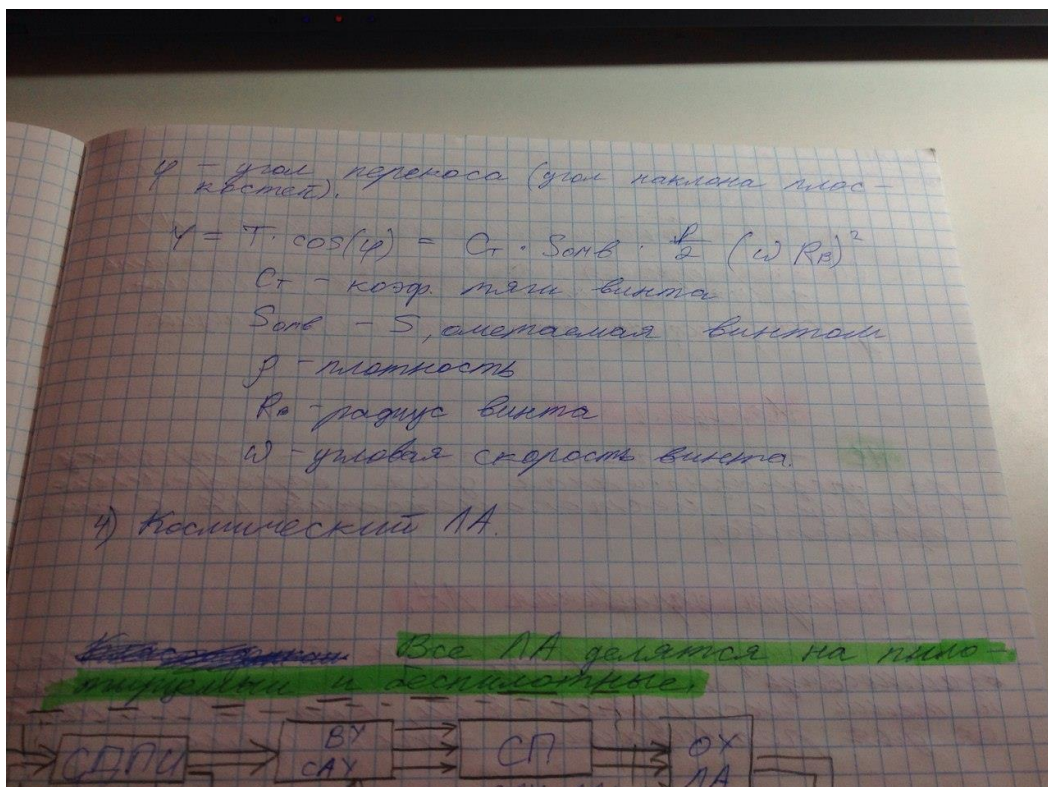 φ – угол перекоса (угол наклона плос–
костей).
Y = T · cos(φ) = Cт · Sомв · ρ/2 (ω Rв)²
Cт – коэф. тяги винта
Sомв – S, ометаемая винтом
ρ – плотность
Rв – радиус винта
ω – угловая скорость винта.
4) Космический ЛА.
Все ЛА делятся на пило–
тируемыи и беспилотные.
СДПИ ВУ СП ОУ
САУ ЛА